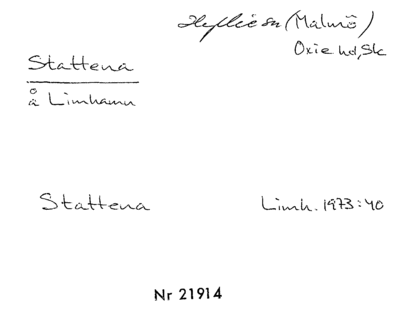 Hyllie sn (Malmö)
Oxie hd, Sk
Stattena
å Limhamn
Stattena Limh. 1973:40
Nr 21914